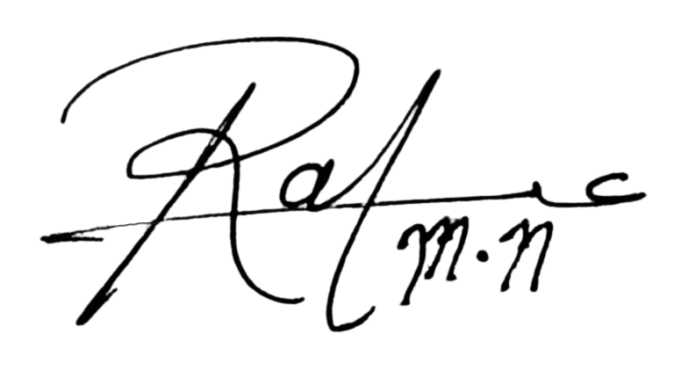 Rafic
M.N